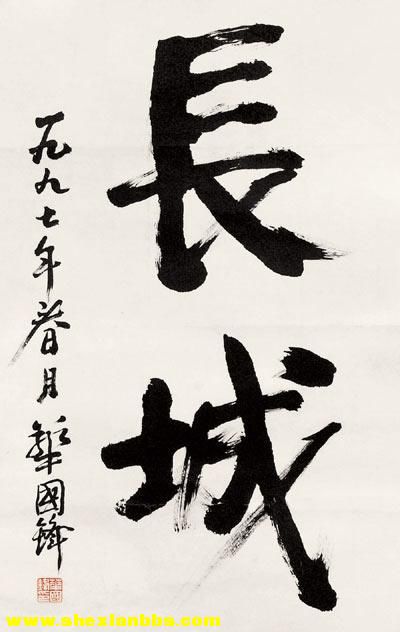 長城
一九九七年春月 華國鋒
www.shexianbbs.com